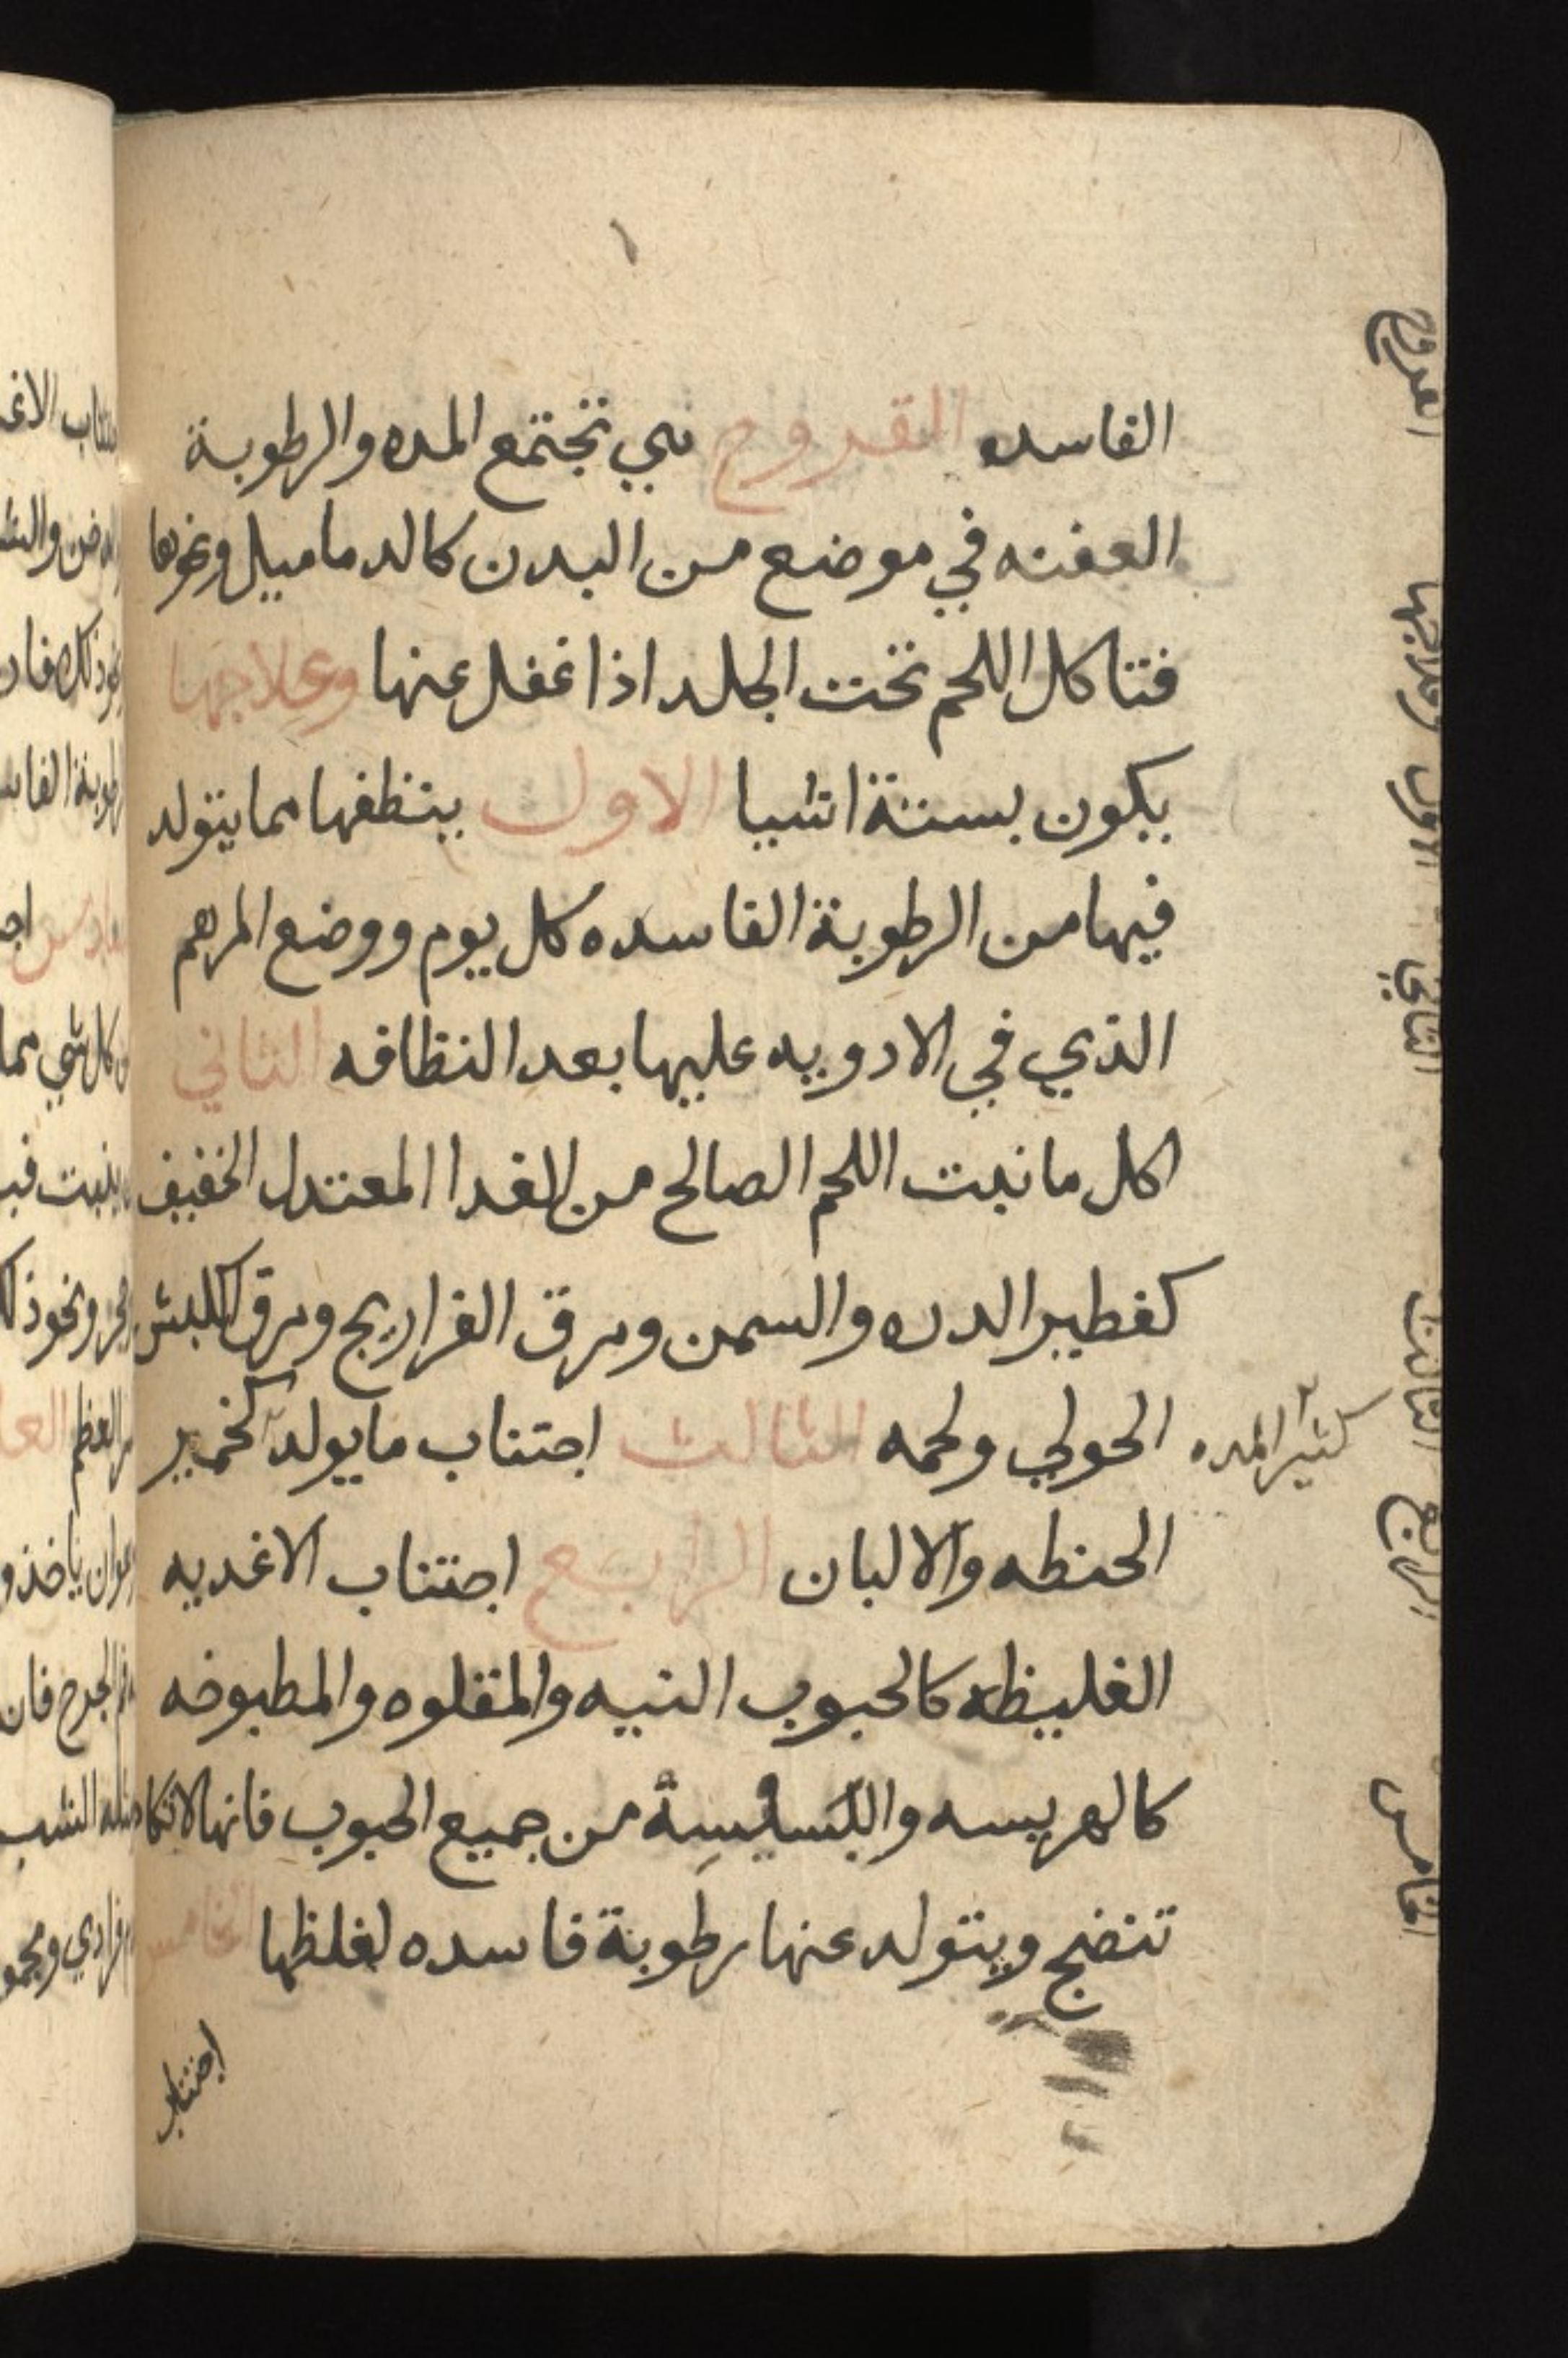 الفاسده القروح هي تجتمع المده والرطوبة
العفنه في موضع من البدن كالدماميل ونحوها
فتاكل اللحم تحت الجلد اذا غفل عنها وعلاجها
يكون بستة اشيا الاول بتنظفها مما يتولد
فيها من الرطوبة الفاسده كل يوم ووضع المرهم
الذي في الادويه عليها بعد النظافه الثاني
اكل ما نبت اللحم الصالح من الغدا المعتدل الخفيف
كفطير الدره والسمن ومرق الفراريج ومرق الكبش
الحولي ولحمه الثالث اجتناب ما يولد كخمير
كثير المده
الحنطه والالبان الرابع اجتناب الاغديه
الغليظه كالحبوب النيه والمقلوه والمطبوخه
كالهريسه والبسيسة من جميع الحبوب فانها لا تكاد
تنضج ويتولد عنها رطوبة فاسده لغلظها الخامس
اجتناب
القروح
وعلاجها
الاول
الثاني
الثالث
الرابع
الخامس